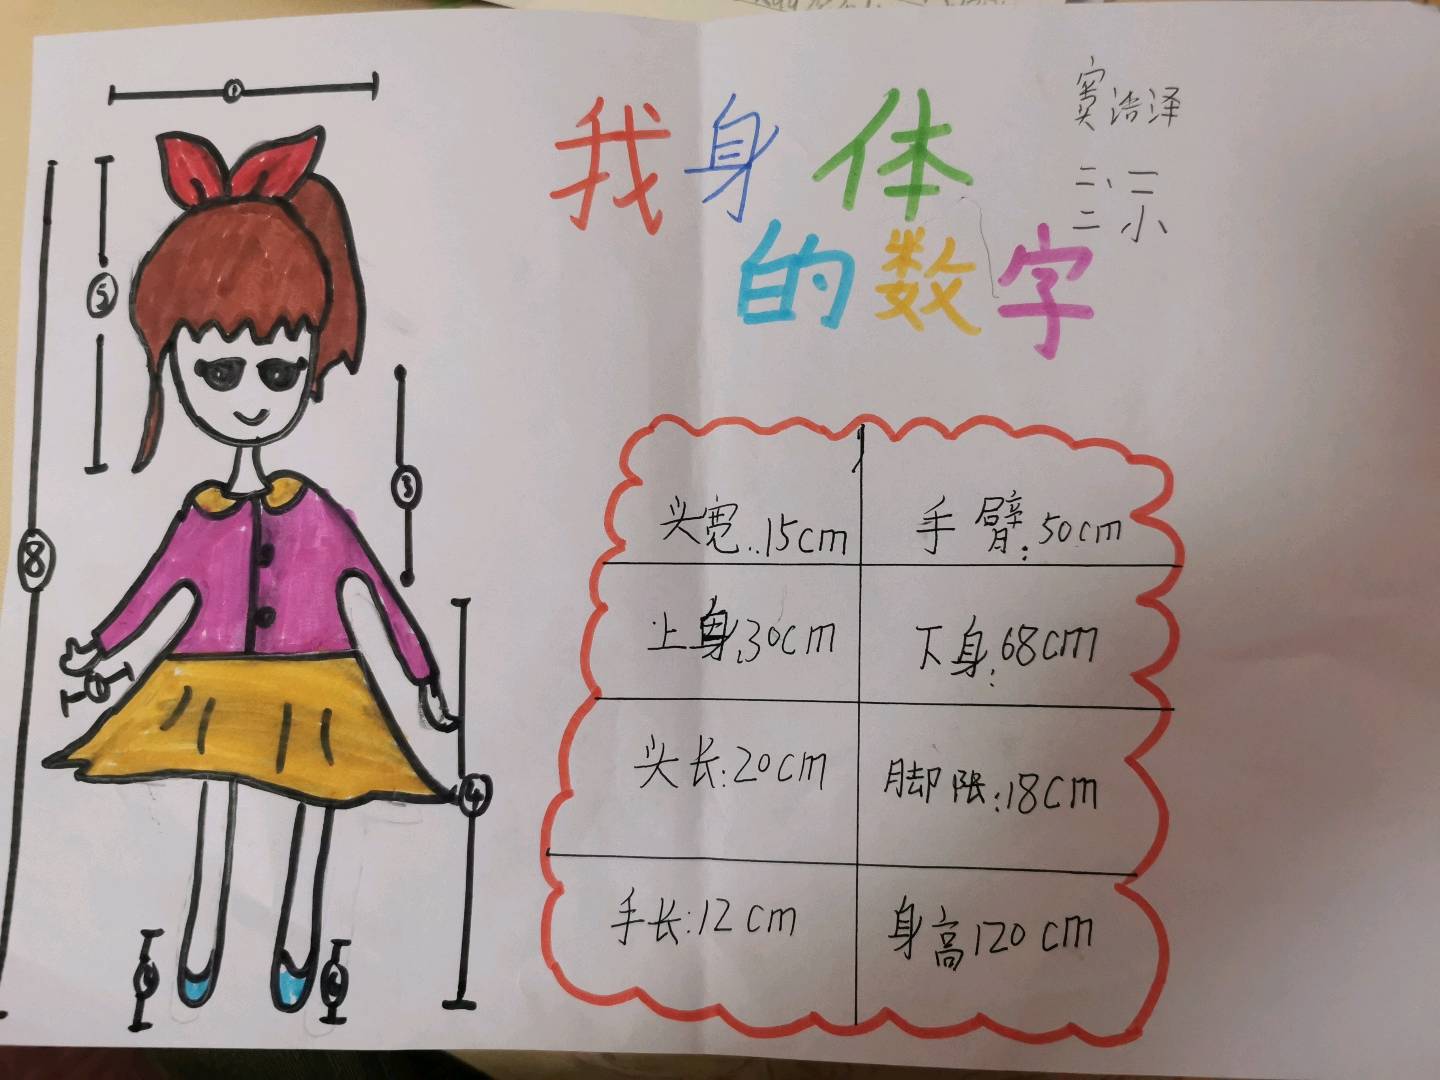 我身体
的数字
窦浩泽
二、二
二小
头宽:15cm
手臂:50cm
上身:30cm
下身:68cm
头长:20cm
脚长:18cm
手长:12cm
身高120cm
①
⑤
③
⑧
④